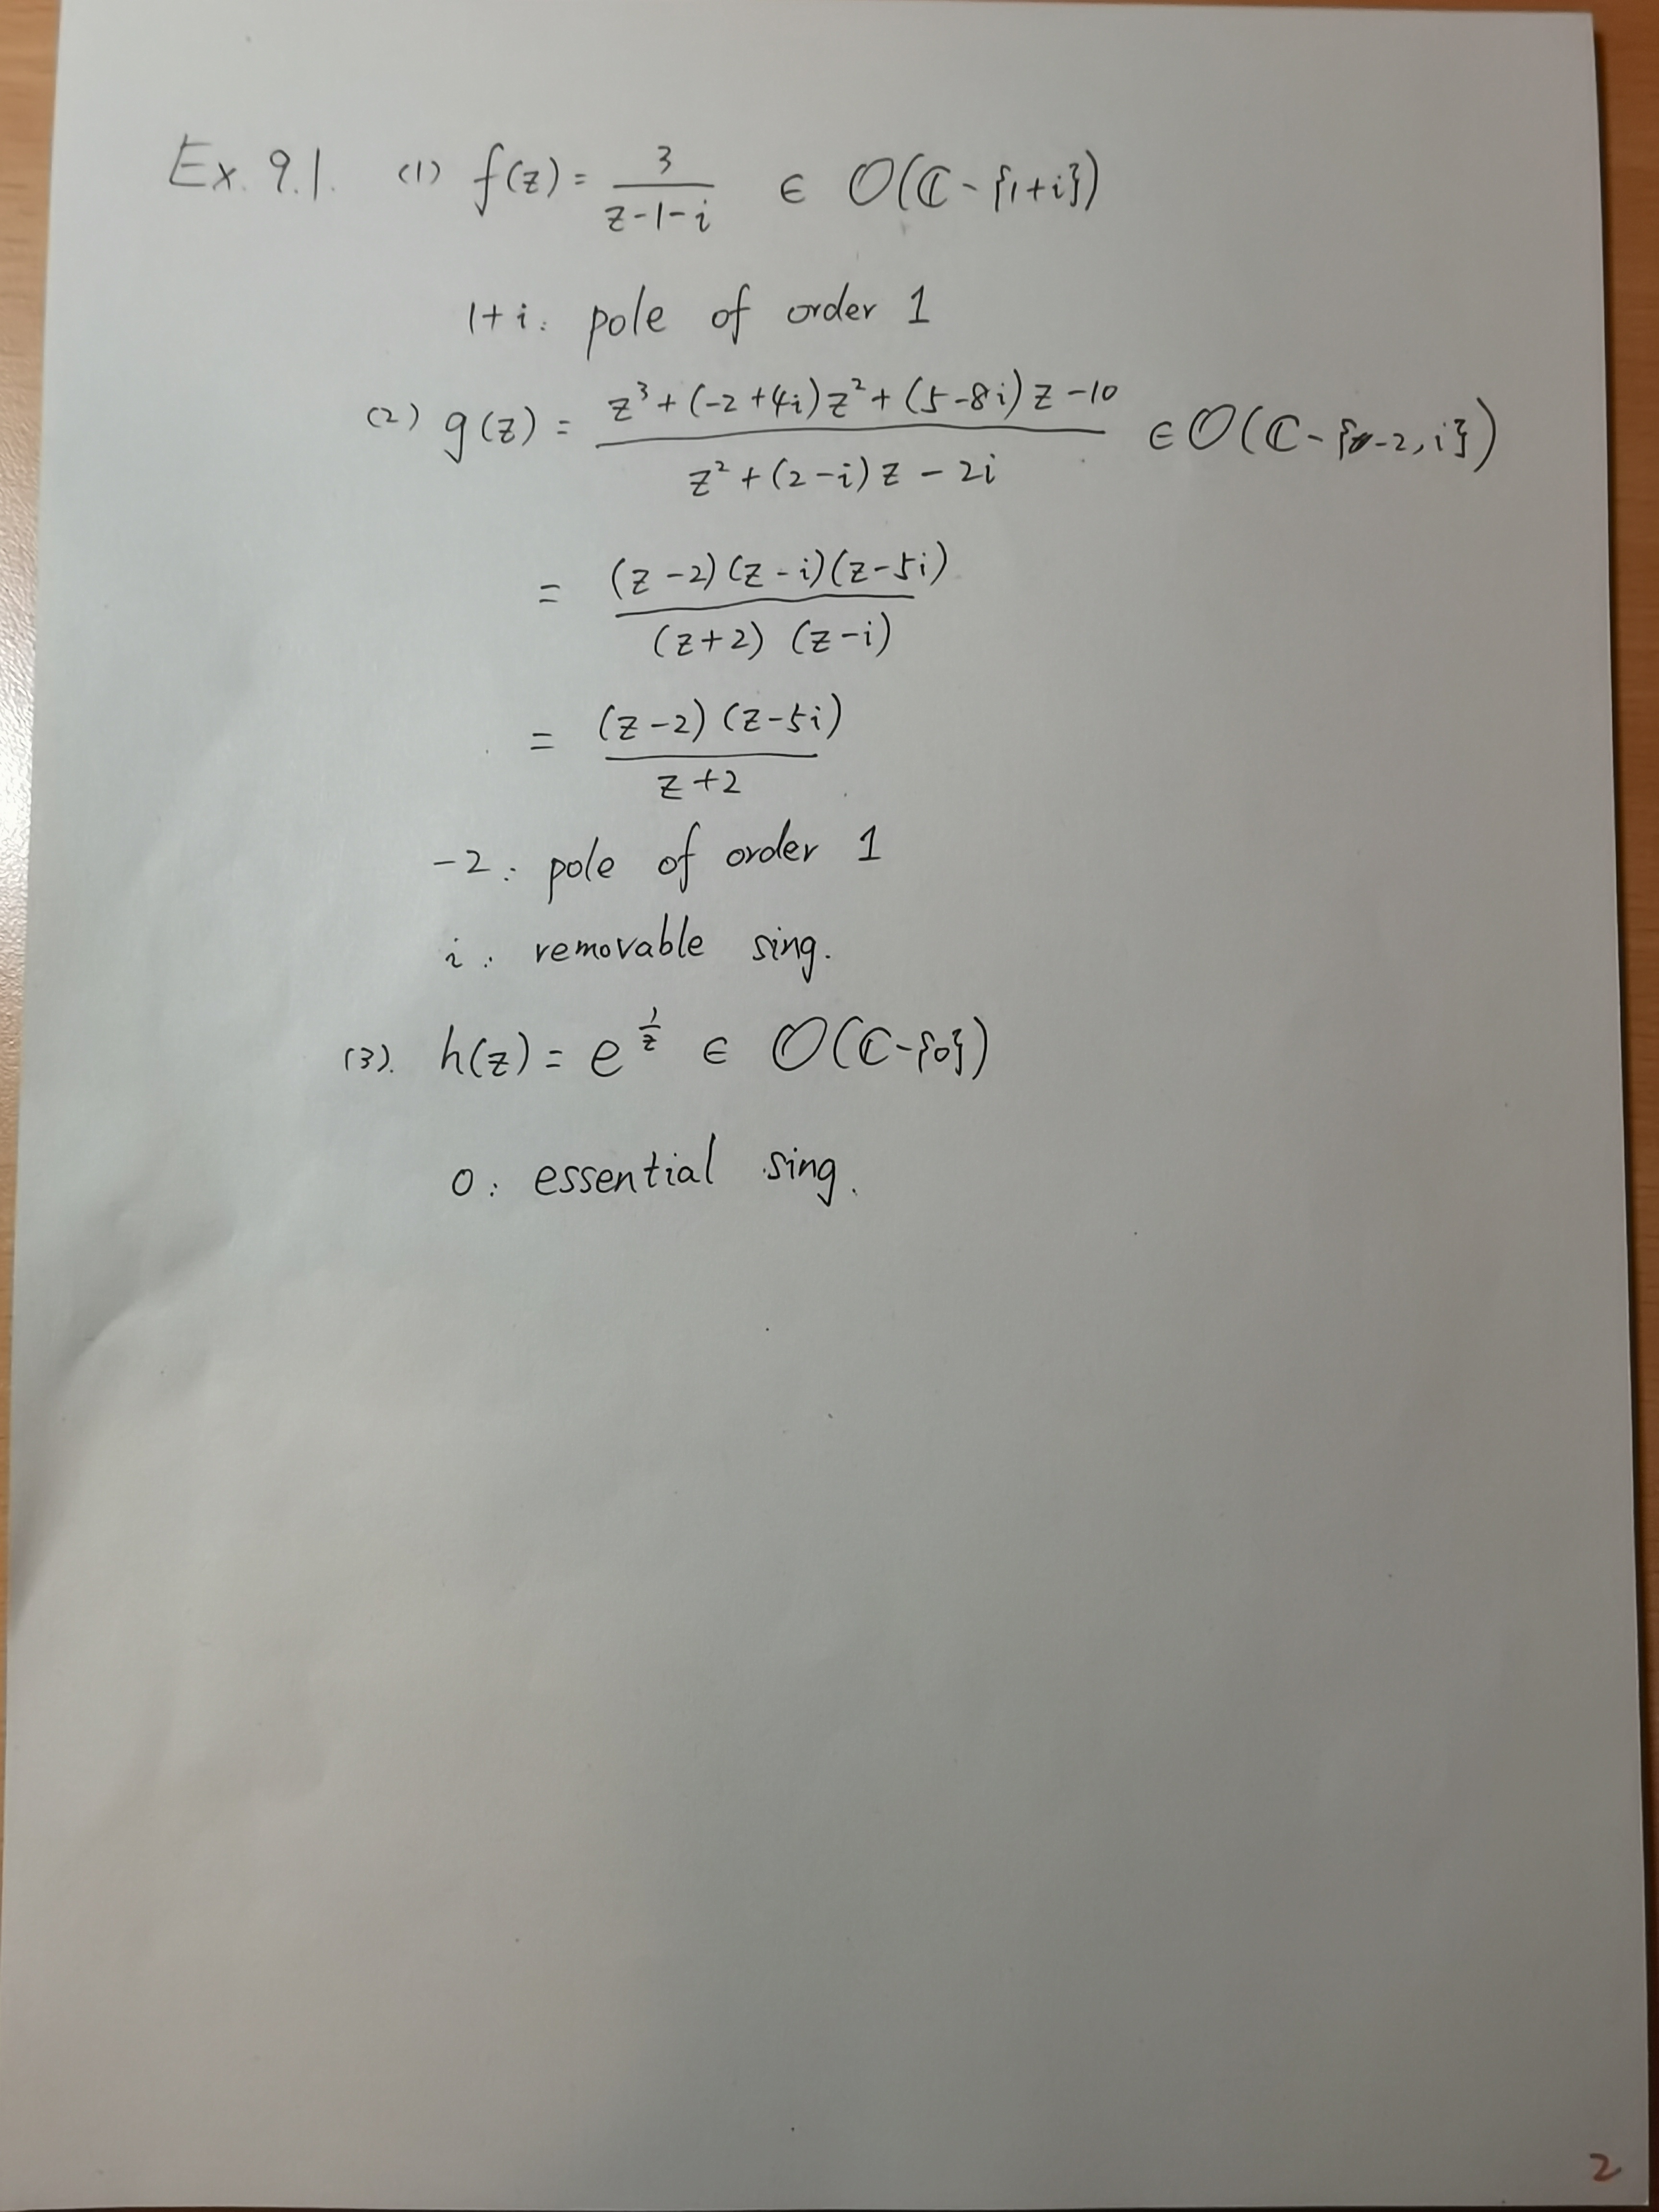 Ex. 9.1. (1) f(z) = 3/(z-1-i) ∈ O(ℂ - {1+i})
1+i: pole of order 1
(2) g(z) = (z³ + (-2+4i)z² + (5-8i)z - 10)/(z² + (2-i)z - 2i) ∈ O(ℂ - {-2, i})
= (z-2)(z-i)(z-5i)/((z+2)(z-i))
= (z-2)(z-5i)/(z+2)
-2: pole of order 1
i: removable sing.
(3). h(z) = e^(1/z) ∈ O(ℂ-{0})
0: essential sing.
2